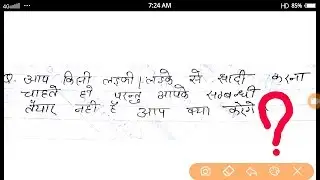 4G
7:24 AM
85%
Q. आप किसी लड़की/लड़के से शादी करना
चाहते हो परन्तु आपके सम्बन्धी
तैयार नहीं है आप क्या करेगे
?